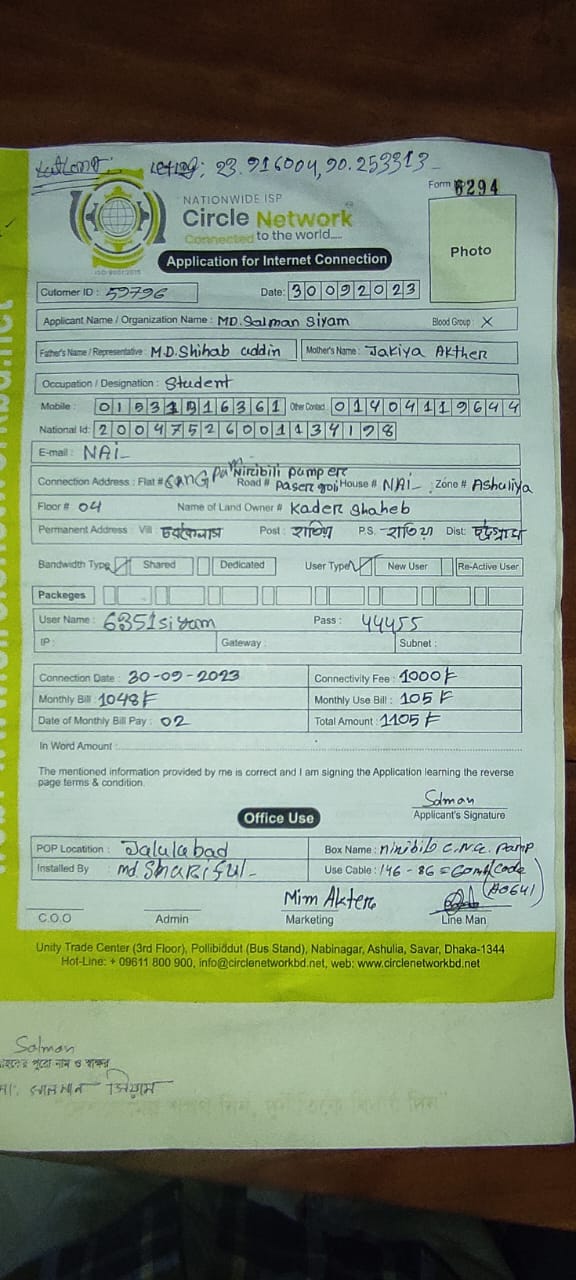 23.916004, 90.253313
Form 6294
NATIONWIDE ISP
Circle Network
Connected to the world.....
ISO 9001:2015
Photo
Application for Internet Connection
Cutomer ID : 59796 Date: 30092023
Applicant Name / Organization Name : MD.Salman Siyam Blood Group : X
Father's Name / Representative : M.D.Shihab uddin Mother's Name : Jakiya Akther
Occupation / Designation : Student
Mobile : Other Contact 01404119644
National Id: 20047526001134198
E-mail : NAI
Connection Address : Flat # Road # Niribili pamper House # NAI Zone # Ashuliya
Floor # 04 Name of Land Owner # Kader Shaheb
Permanent Address : Vill Post : P.S. Dist:
Bandwidth Type Shared Dedicated User Type New User Re-Active User
Packeges
User Name : 6351siyam Pass : 44455
IP : Gateway : Subnet :
Connection Date : 30-09-2023 Connectivity Fee : 1000
Monthly Bill : 1048 Monthly Use Bill : 105
Date of Monthly Bill Pay : 02 Total Amount : 1105
In Word Amount :
The mentioned information provided by me is correct and I am signing the Application learning the reverse
page terms & condition.
Salman
Applicant's Signature
Office Use
POP Locatition : Jalalabad Box Name : niribilo C.N.G. Pamp
Installed By md Shariful Use Cable : 146 - 86 = 60m (Code
Mim Akter
C.O.O Admin Marketing Line Man
Unity Trade Center (3rd Floor), Pollibiddut (Bus Stand), Nabinagar, Ashulia, Savar, Dhaka-1344
Hot-Line: + 09611 800 900, info@circlenetworkbd.net, web: www.circlenetworkbd.net
Salman
পুরো নাম ও স্বাক্ষর
সালমান সিয়াম